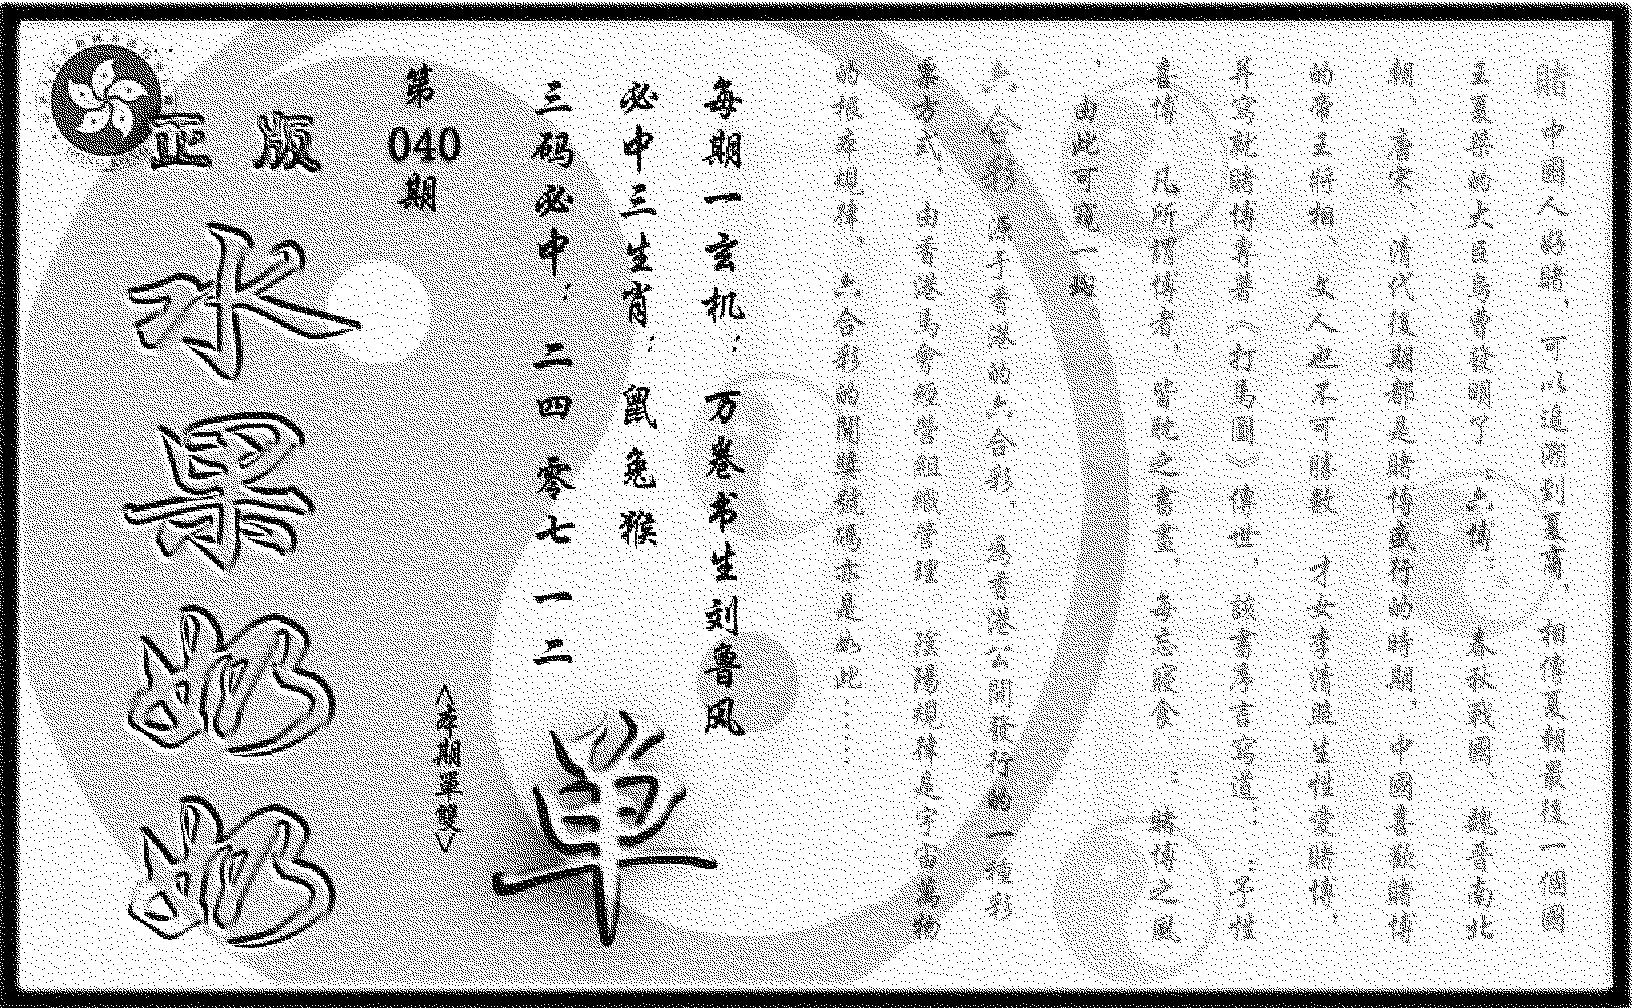 賭中國人好賭，可以追溯到夏商，相傳夏朝最後一個國
王夏桀的大臣烏曹發明了“六博”。春秋戰國、魏晉南北
朝、唐宋、清代後期都是賭博盛行的時期。中國喜歡賭博
的帝王將相、文人也不可勝數，才女李清照生性愛賭博，
并寫就賭博專著《打馬圖》傳世，該書序言寫道：“予性
喜博，凡所謂博者，皆耽之書畫，每忘寢食”；賭博之風
，由此可窺一斑
六合彩，源于香港的六合彩，為香港公開發行的一種彩
票方式，由香港馬會經營組織管理
陰陽規律是宇宙萬物
的根本規律，六合彩的開獎號碼亦是如此……
每期一玄机：万卷书生刘鲁风
必中三生肖：鼠兔猴
三码必中：二四 零七 一二
第
040
期
<本期單雙>
单
正版
水果奶奶